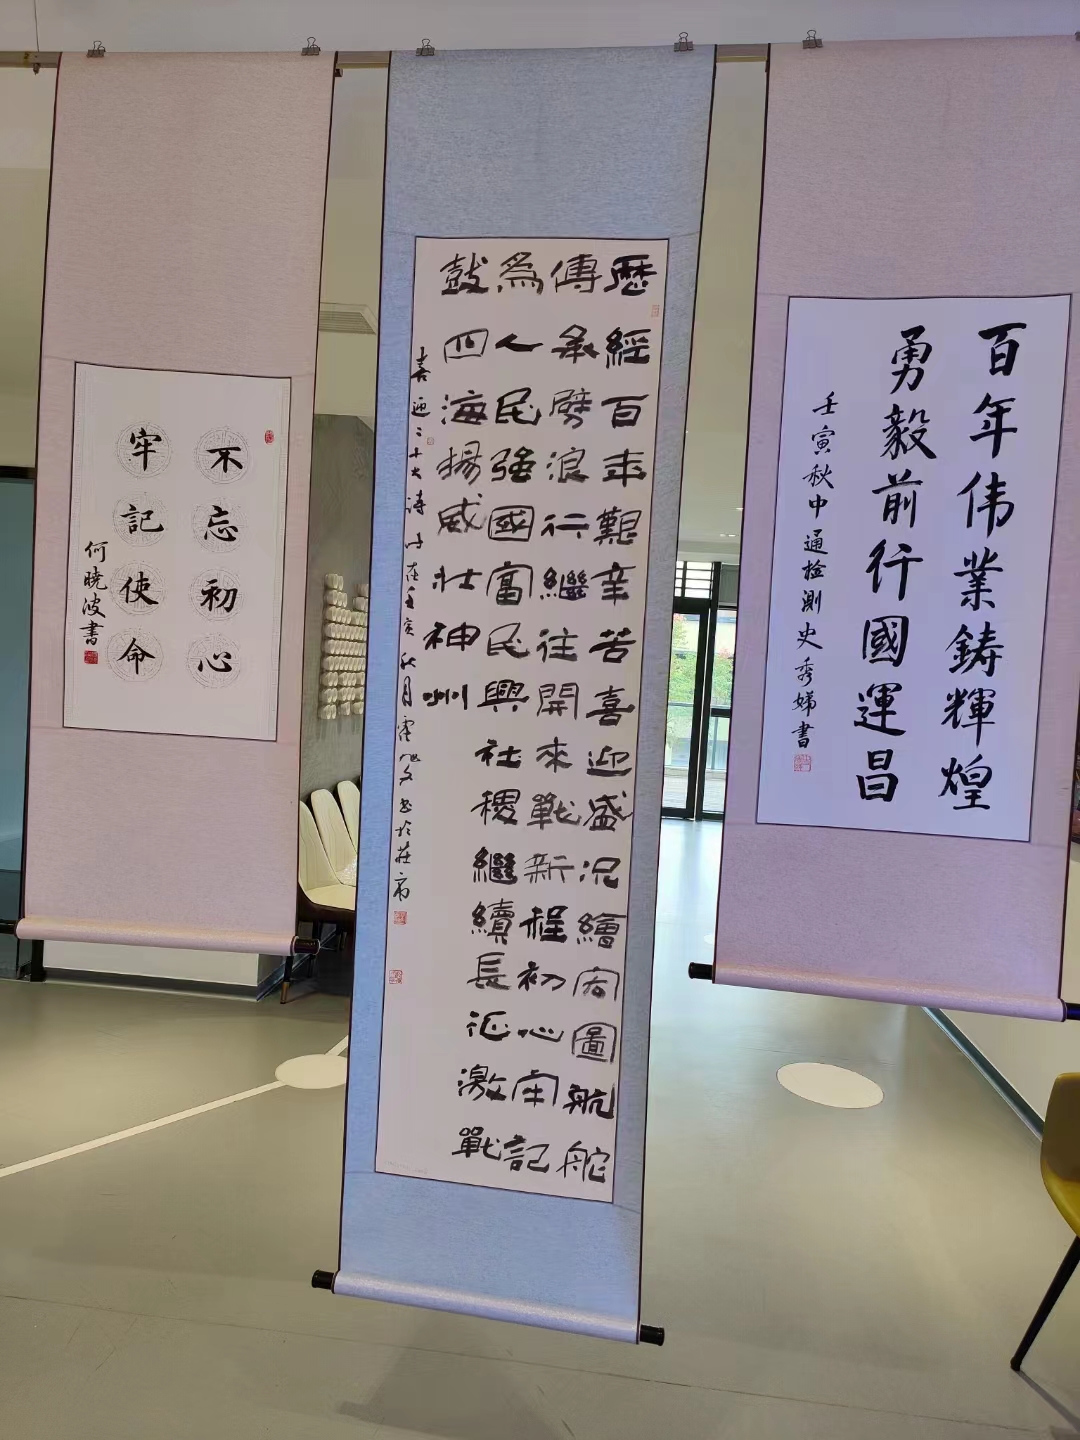 不忘初心
牢記使命
何曉波書
歷經百年艱辛苦喜迎盛況繪宏圖航舵
傳承劈浪行繼往開來戰新程初心牢記
為人民強國富民興社稷繼續長征激戰
鼓四海揚威壯神州
喜迎二十大詩 时在壬寅秋月 书於莊市
百年伟業鋳輝煌
勇毅前行國運昌
壬寅秋中通检測史秀娣書